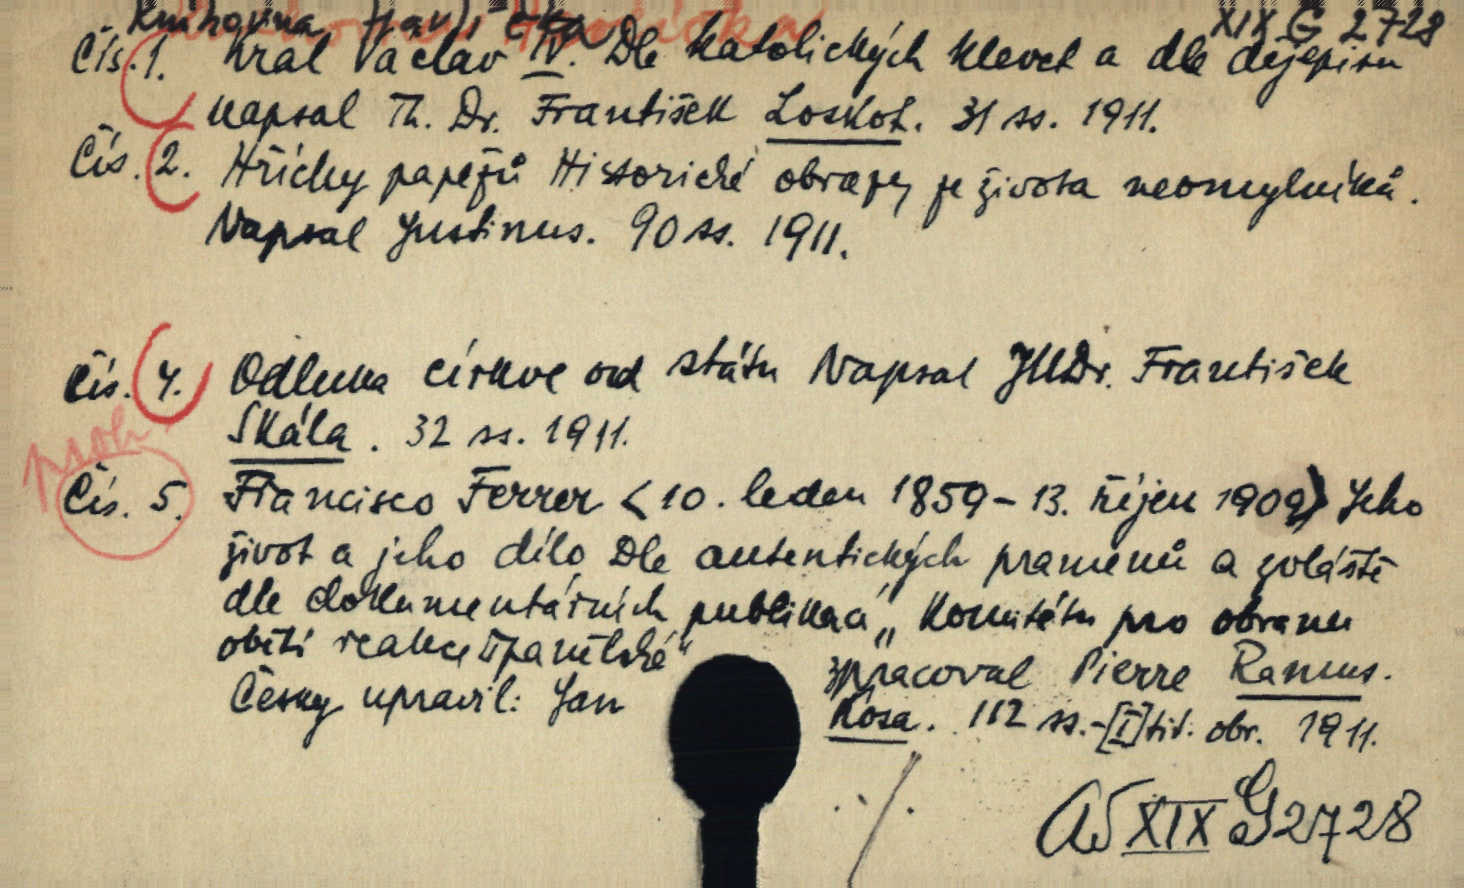 Knihovna Havlíčka XIX G 2728
Čís. 1. Král Václav IV. Dle katolických klevet a dle dějepisu
napsal Th. Dr. František Loskot. 31 ss. 1911.
Čís. 2. Hříchy papežů Historické obrazy ze života neomylníků.
Napsal Justinus. 90 ss. 1911.
Čís. 4. Odluka církve od státu Napsal JUDr. František
Skála. 32 ss. 1911.
Čís. 5. Francisco Ferrer <10. leden 1859 – 13. říjen 1909> Jeho
život a jeho dílo Dle autentických pramenů a zvláště
dle dokumentárních publikací „Komitétu pro obranu
obětí reakce španělské" zpracoval Pierre Ramus.
Česky upravil: Jan Kosa. 112 ss.-[I] tit. obr. 1911.
XIX G 2728